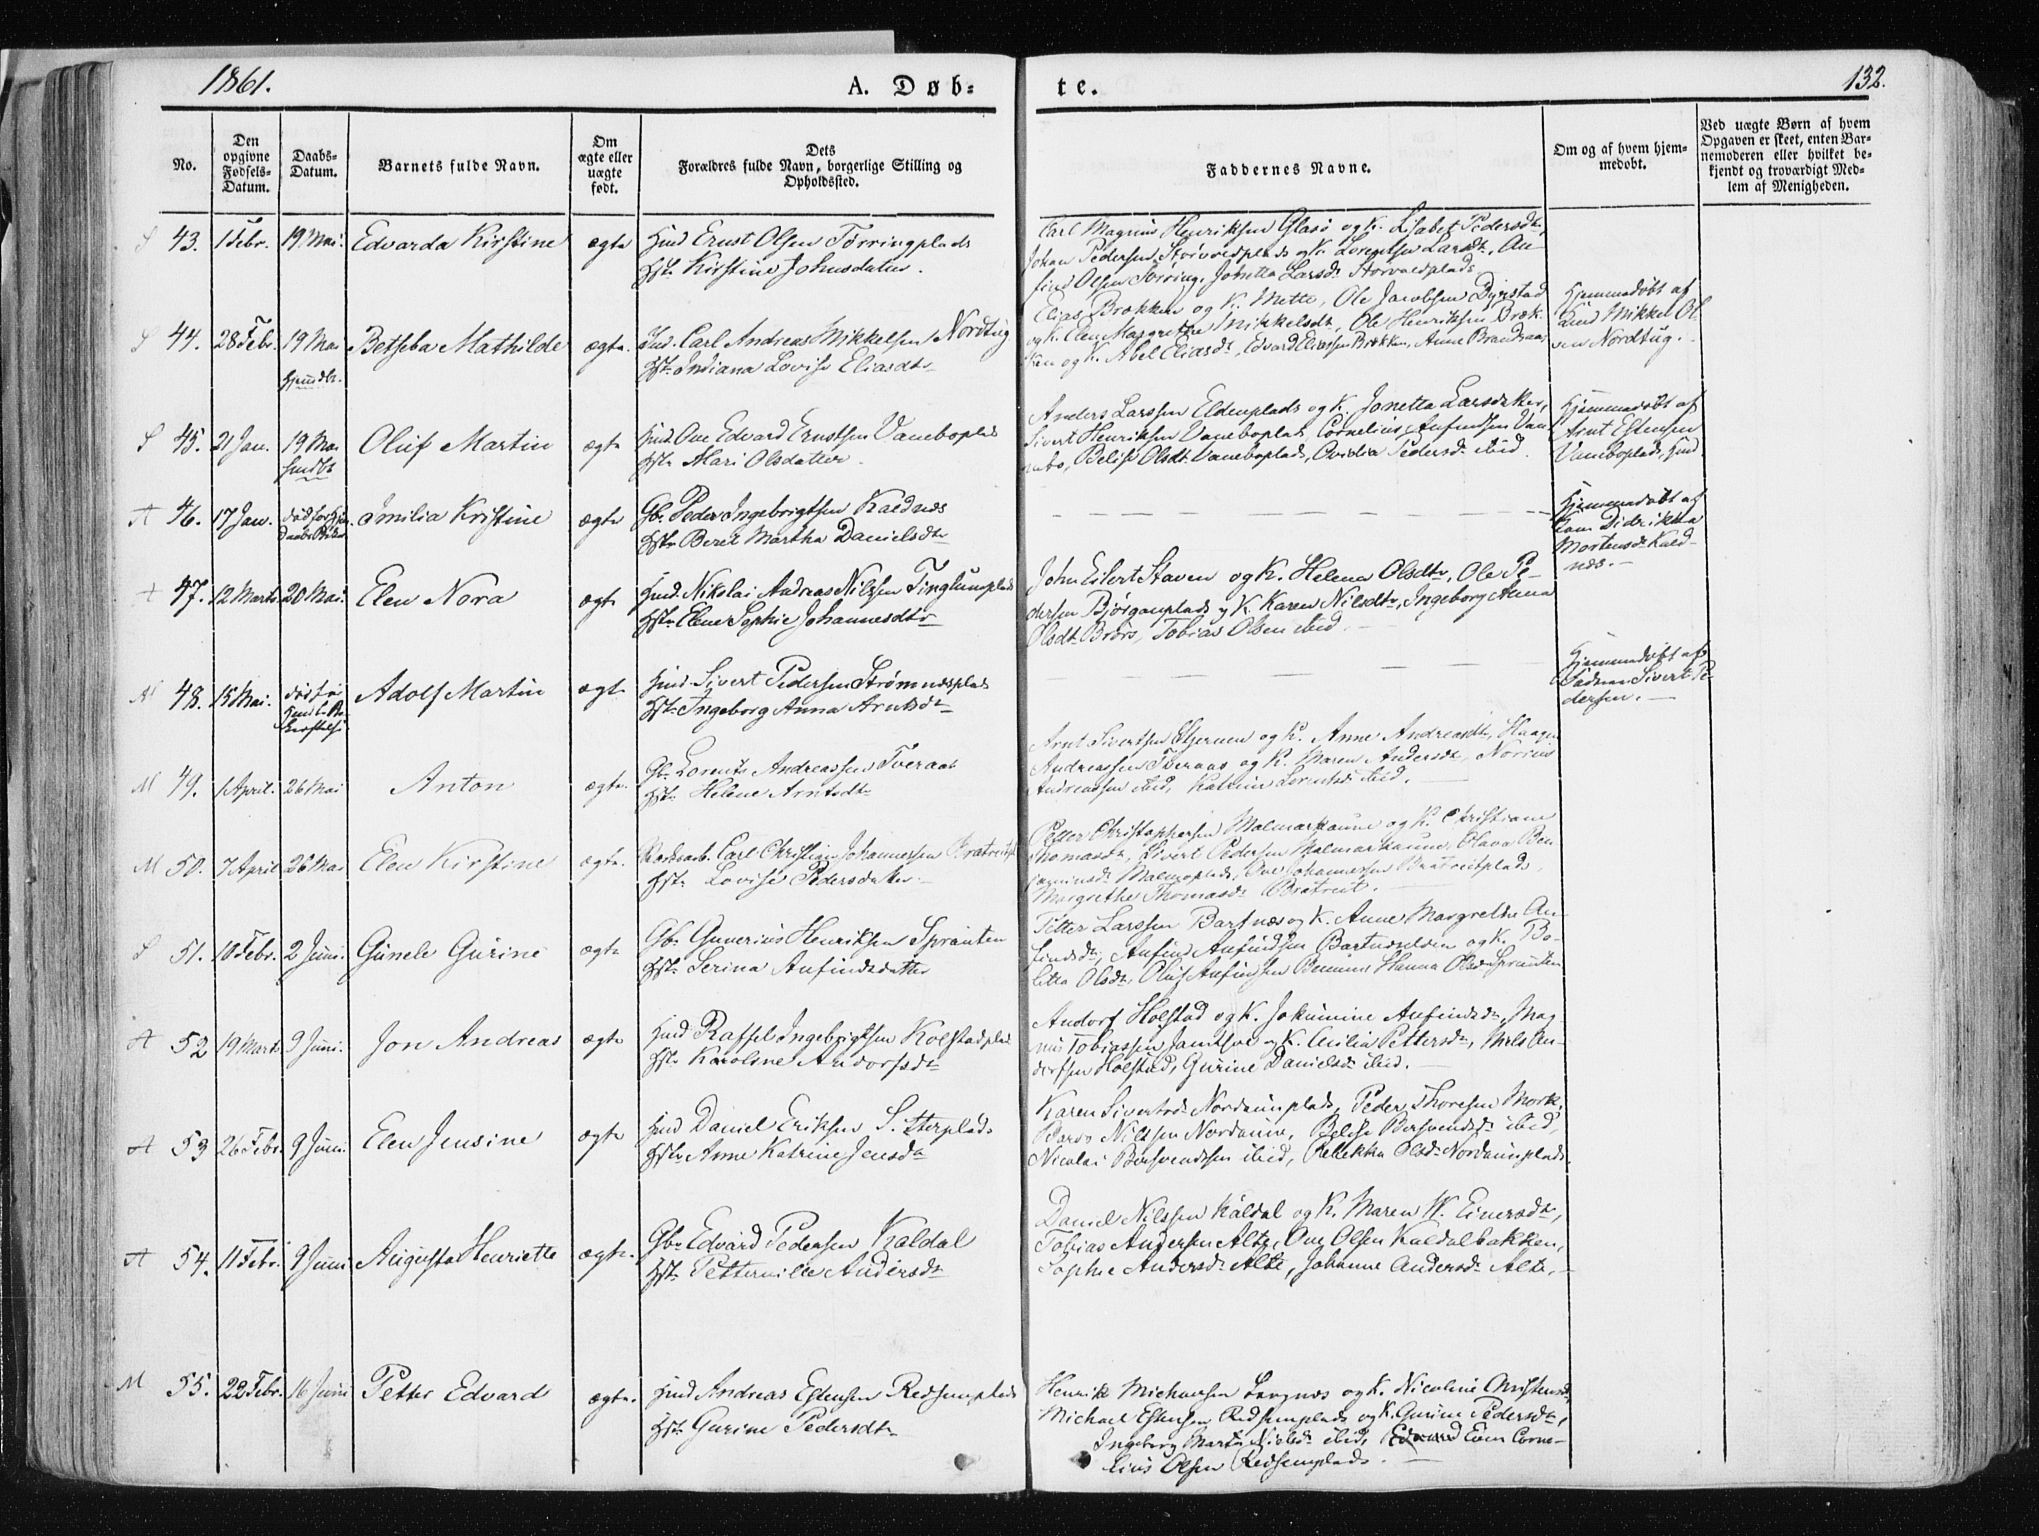 1861.
A. Døb-
te.
132.
No.
Den opgivne Fødsels-Datum.
Daabs-Datum.
Barnets fulde Navn.
Om ægte eller uægte født.
Dets Forældres fulde Navn, borgerlige Stilling og Opholdssted.
Faddernes Navne.
Om og af hvem hjem-medøbt.
Ved uægte Børn af hvem Opgaven er skeet, enten Bar-nemoderen eller hvilket be-kjendt og troværdigt Med-lem af Menigheden.
S 43. 1 Febr. 19 Mai. Edvarda Kirstine ægte Hmd Ernst Olsen Tørringplads
Hst. Kirstine Johnsdatter.
Carl Magnus Henriksen Glasø og K. Lisabet Pedersdtr,
Johan Pedersen Størvoldplads og K. Larsdtr, An-
find Olsen Tørring, Johetta Larsdtr Storvoldplads
S 44. 28 Febr. 19 Mai Betseba Mathilde ægte. Ind. Carl Andreas Mikkelsen Nordtug
hjemdbt.
Hst. Indiana Lovise Eliasdtr
Elias Brækken og K. Mette, Ole Jacobsen Dyrstad
og K. Elen Margrethe Mikkelsdtr, Ole Henriksen Bræk-
ken og K. Abel Eliasdtr, Edvard Eliassen Brækken, Anne
Hjemmedøbt af
Mikkel Ol-
sen Nordtug.
S 45. 21 Jan. 19 Mai Oluf Martin ægte Hmd. Ove Edvard Ernstsen Vaneboplads
Hst. Mari Olsdatter.
Anders Larssen Eldenplads og K. Jonetta Larsdatter,
Sivert Henriksen Vaneboplads, Cornelius Anfindsen Va-
nebo, Belise Olsdt. Vaneboplads, Ovidia Pedersdt. ibid.
Hjemmedøbt af
Arnt Estensen
Vaneboplads, Hmd
A 46. 17 Jan. Emilia Kirstine ægte Gbr. Peder Ingebrigtsen Kaldnes
Hst. Beret Martha Danielsdtr
Hjemmedøbt af
Didrikka
Mortensdt. Kald-
nes.
47. 12 Marts 20 Mai. Elen Nora ægte Hmd. Nikolai Andreas Nilssen Tinglumplads
Hst. Elene Sophie Johannesdtr
John Eilert Staven og K. Helena Olsdtr, Ole Pe-
dersen Bjørganplads og K. Karen Nilsdtr, Ingeborg Anna
Olsdt. Brørs, Tobias Olsen ibid.
N 48. 15 Mai. Adolf Martin ægte Hmd. Sivert Pedersen Strømnesplads
Hst. Ingeborg Anna Arntsdtr
Hjemmedøbt af
Faderen Sivert Pe-
dersen.
M 49. 1 April. 26 Mai Anton ægte. Gbr. Lorents Andreassen Tveraas
Hst. Helene Arntsdtr
Arnt Sivertsen og K. Anne Andreasdtr, Haagen
Andreassen Tveraas og K. Maren Andersdtr,
Andreassen ibid, Katrine Lorentsdt. ibid.
M 50. 7 April 26 Mai Elen Kirstine ægte. Carl Christian Johannessen Bratreit
Hst. Lovise Pedersdatter.
Petter Christophersen Malmarkaune og K. Christiane
Thomasdt, Sivert Pedersen Malmarkaune, Olava Ben-
jaminsdt. Malmoplads, Ove Johannessen Bratreitplads,
Margrethe Thomasdt. Bratreit.
S 51. 10 Febr. 2 Juni. Gunele Gurine ægte Gbr. Gunerius Henriksen Sprauten
Hst. Serina Anfindsdatter
Petter Larssen Bartnes og K. Anne Margrethe An-
findsdt, Anfind Anfindsen Bartneselven og K. Bo-
letta Olsdt, Oluf Anfindsen Hanna Olsdt. Sprauten
A 52 19 Marts 9 Juni. Jon Andreas ægte Hmd Raffel Ingebrigtsen Kolstadplads
Hst. Karoline Andorfsdtr
Andorf Holstad og K. Jokumine Anfindsdt, Mag-
nus Tobiassen og K. Cecilia Pettersdt, Nils An-
dorfsen Holstad, Gurine Danielsdt. ibid.
A 53 26 Febr. 9 Juni. Elen Jensine ægte Hmd Daniel Eriksen
Hst. Anne Katrine Jensdtr
Karen Sivertsdt. Nordaunplads, Peder Thoresen Mork,
Bardo Nilssen Nordaune, Belise Bersvendsdt. ibid,
Nicolai Bersvendsen ibid, Rebekka Olsdt. Nordaunplads.
A 54. 11 Febr. 9 Juni Augusta Henriette ægte. Gbr. Edvard Pedersen Kaldal
Hst. Petternille Andersdtr
Daniel Nilssen Kaldal og K. Maren M. Einersdtr,
Tobias Andersen Alte, Ove Olsen Kaldalbakken,
Sophie Andersdt. Alte, Johanne Andersdt. Alte.
M 55. 22 Febr. 16 Juni Petter Edvard ægte. Hmd Andreas Estensen Redsemplads
Hst. Gurine Pedersdtr
Henrik Michaelsen og K. Nicoline Christensdt,
Michael Estensen Redsemplads og K. Gurine Pedersdtr,
Ingeborg Marta Nilsdt. ibid, Even Corne-
lius Olsen Redsemplads.